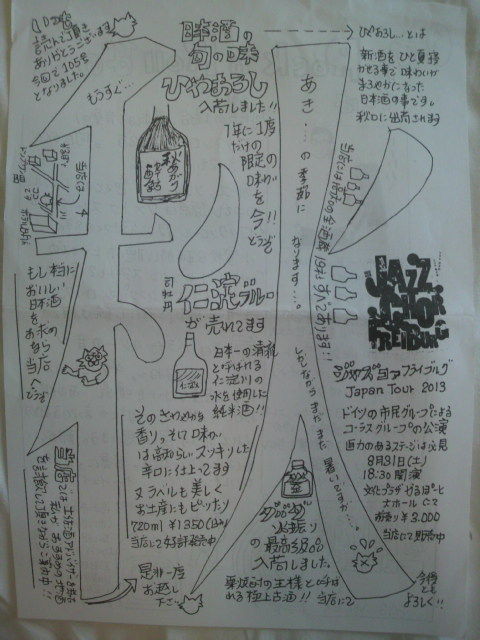 いつも
読んで頂き
ありがとうございます
今回で105号
となりました。
もうすぐ…
日本酒の
旬の味
ひやおろし
入荷しました!!
1年に1度
だけの
限定の
味わい
を
今!!
どうぞ
秋あがり
あき…の季節に
なります…。
しかしながらまだまだ暑いですが…。
ひやおろし…とは
新酒をひと夏寝
かせる事で味わいが
まろやかになった
日本酒の事です。
秋口に出荷されます
当店には
すべてあります!!
もし本当に
おいしい
日本酒
を
お求め
なら
当店
へどうぞ
司牡丹
仁淀ブルー
が売れてます
日本一の清流
と呼ばれる
仁淀川の
水を使用した
純米酒!!
そのさわやかな
香り、そして味わい
は素晴らしいスッキリした
辛口に仕上ってます
又ラベルも美しく
お土産にもピッタリ
720ml ¥1350(込)
当店にて好評発売中
是非一度
お越し
下さい
ダバダ
火振り
の最高級品
入荷しました。
栗焼酎の王様と呼ば
れる極上古酒!!
当店にて
JAZZ
CHOR
FREIBURG
ジャズコア フライブルグ
Japan Tour 2013
ドイツの市民グループによる
コーラスグループの公演
迫力のあるステージは必見
8月31日(土)
18:30 開演
文化プラザかるぽーと
大ホールにて
前売り ¥3,000
当店にて販売中
今後
とも
よろしく!!